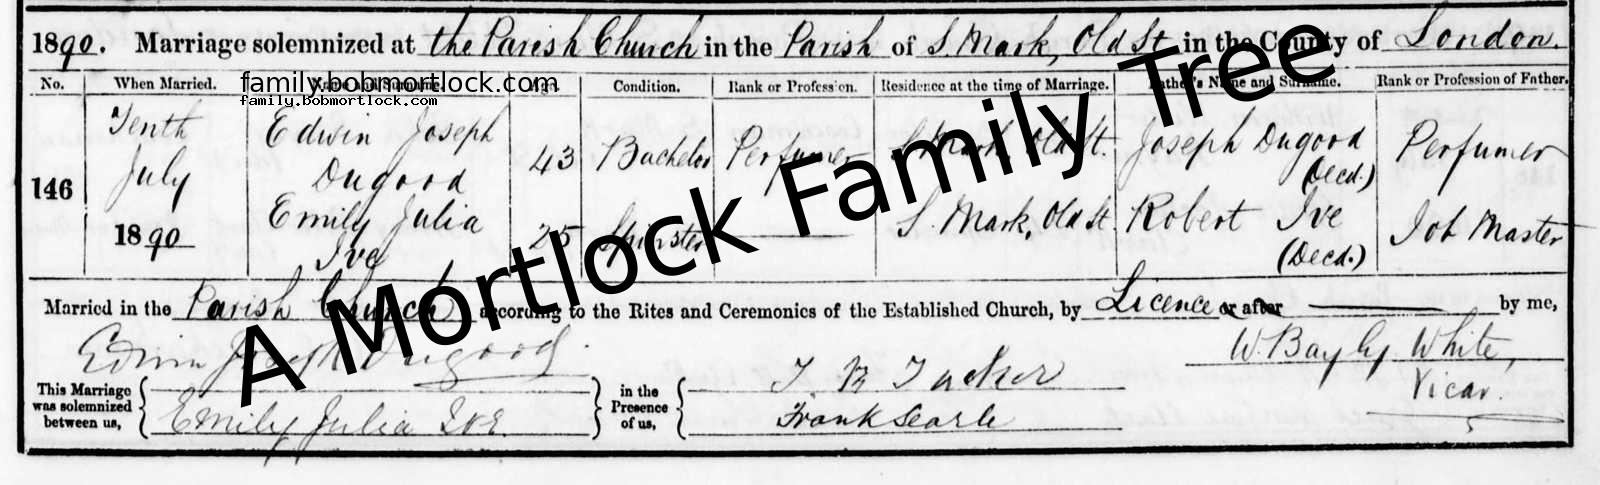 1890. Marriage solemnized at the Parish Church in the Parish of S. Mark, Old St in the County of London.
No. When Married. Name and Surname. Age. Condition. Rank or Profession. Residence at the time of Marriage. Father's Name and Surname. Rank or Profession of Father.
family.bobmortlock.com
family.bobmortlock.com
146 Tenth July 1890
Edwin Joseph Dugood 43 Bachelor Perfumer S. Mark, Old St. Joseph Dugood (Decd.) Perfumer
Emily Julia Ive 25 Spinster S. Mark, Old St Robert Ive (Decd.) Job Master
A Mortlock Family Tree
Married in the Parish Church according to the Rites and Ceremonies of the Established Church, by Licence or after by me,
Edwin Joseph Dugood. W. Bayly White,
This Marriage was solemnized between us, Emily Julia Ive.
in the Presence of us, T B Tucker
Frank Searle
Vicar